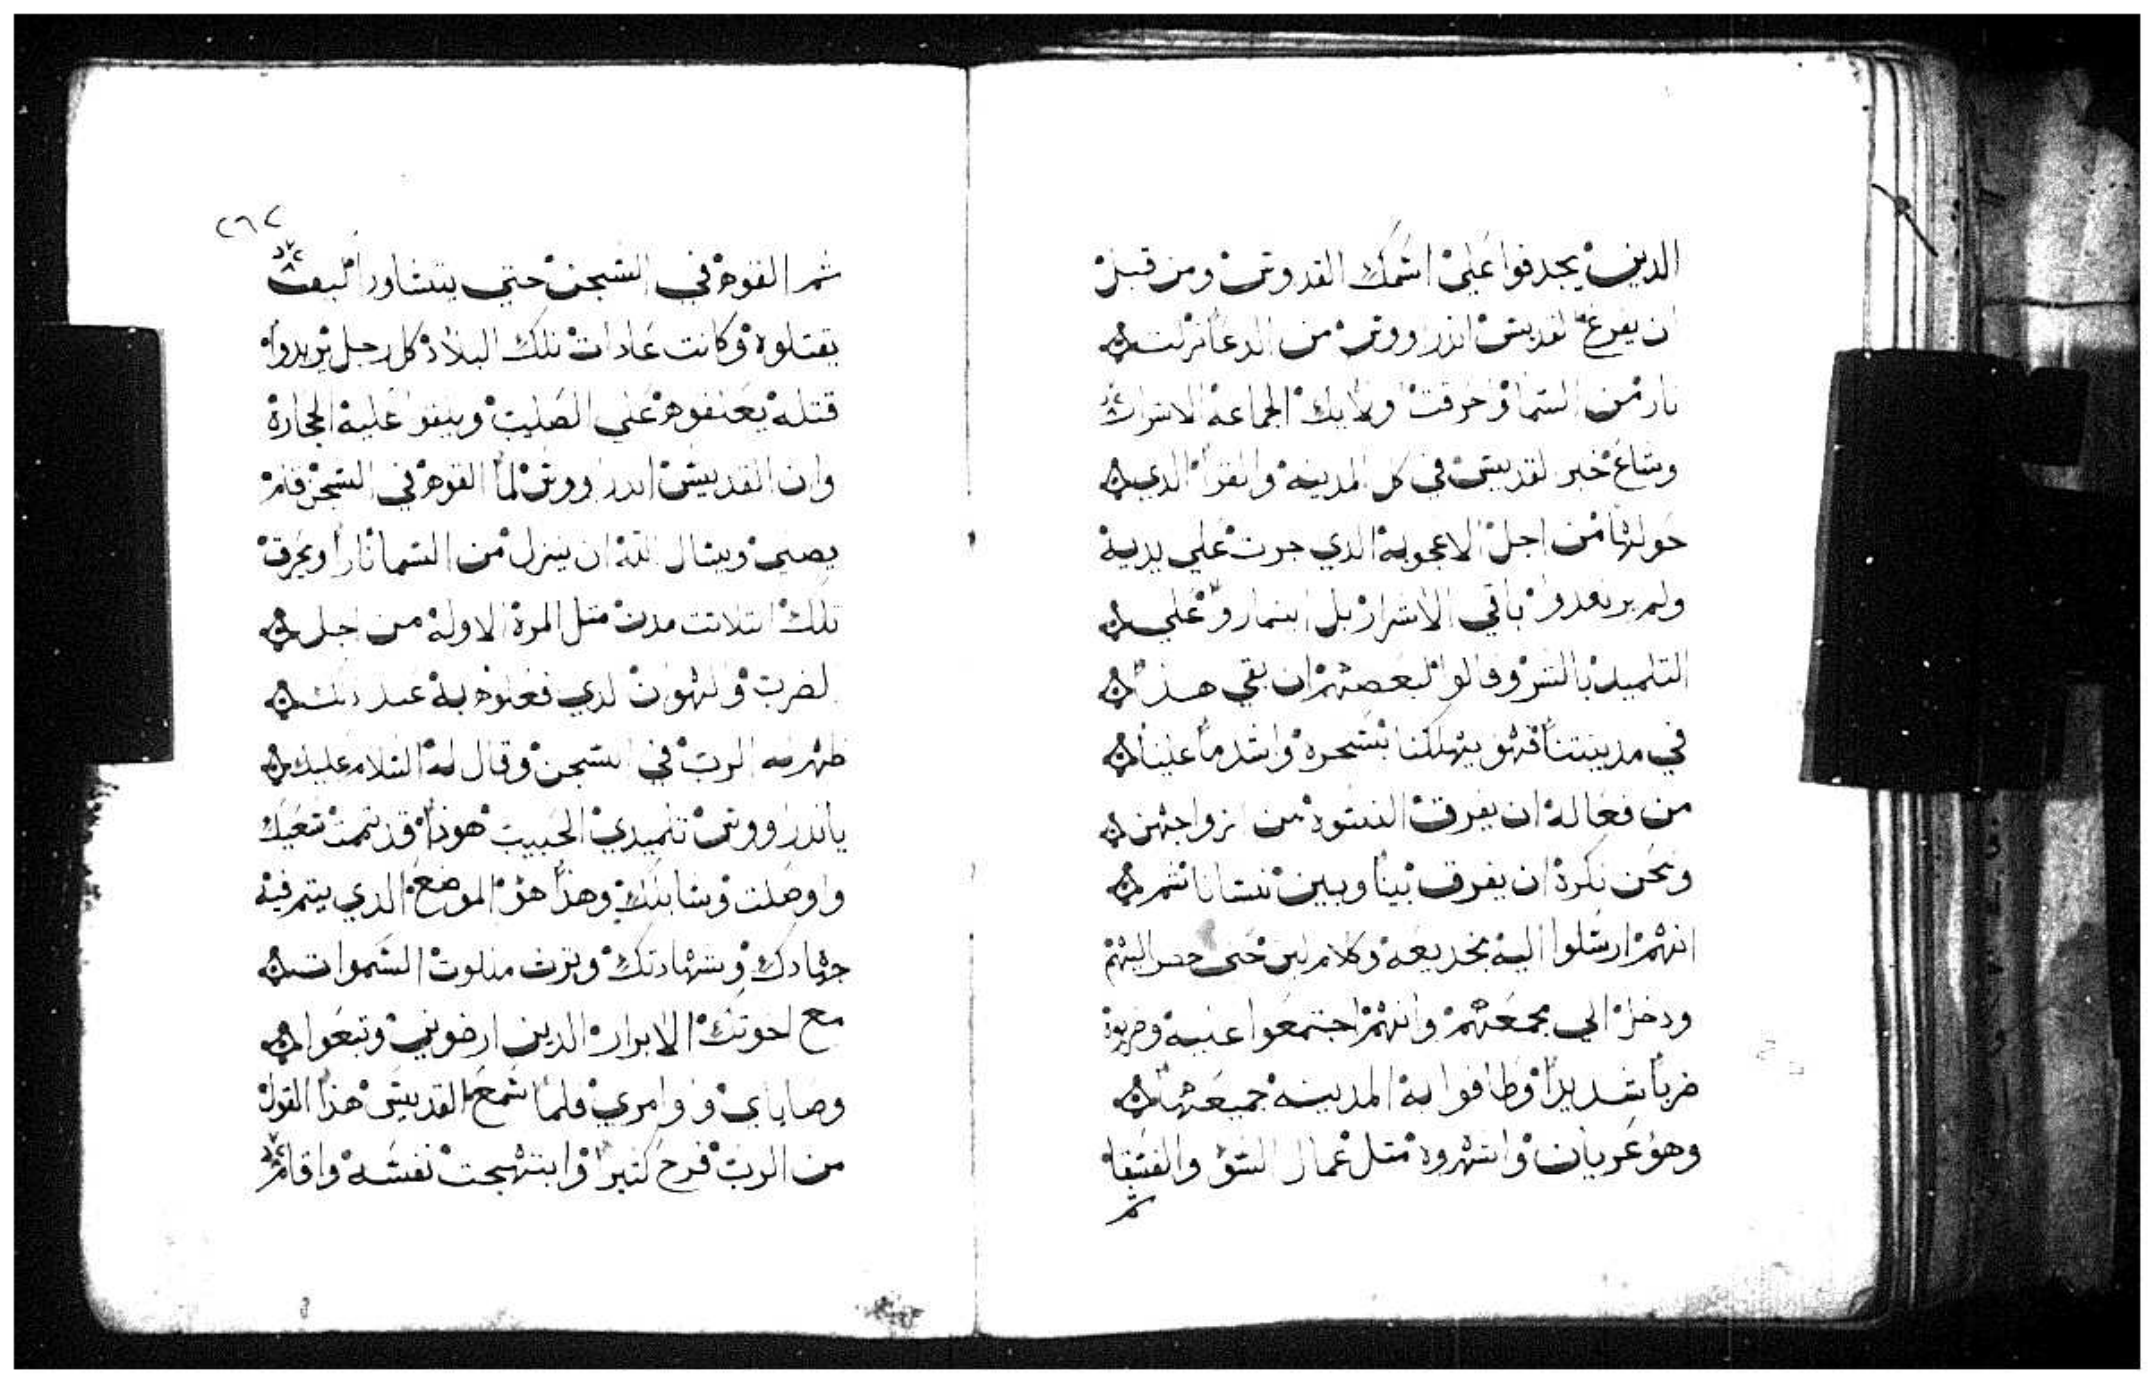 الدين يجدفوا علي اسمك القدوس ومن قبل
ان يفرغ القديس اندراووس من الدعا نزلت
نار من السما وحرقت اولايك الجماعة الاشرار
وشاع خبر القديس في كل المدينة والقرا الدي
حولها من اجل الاعجوبة الدي جرت علي يدية
ولم يرتعدوا باقي الاشرار بل علي
التلميد بالشر وقالوا لبعضهم ان بقي هذا
في مدينتنا فهو يهلكنا بسحره واشد ما علينا
من فعاله ان يفرق النسوة من ازواجهن
ونحن نكرة ان يفرق بينا وبين نسانا ثم
انهم ارسلوا الية بخديعة وكلام لين حتى حضر اليهم
ودخل الي مجمعهم وانهم اجتمعوا عليه وضربوة
ضرباً شديداً وطافوا بة المدينة جميعها
وهو عريان واشهروة متل عمال السو والفسقا
ثم
٢٦٧
ثم القوة في السجن حتي يتشاورا كيف
يقتلوة وكانت عادات تلك البلاد كل رجل يريدوا
قتلة يعلقوة علي الصليب ويلقوا علية الحجارة
وان القديس اندراووس لما القوة في السجن قام
يصلي ويسال اللة ان ينزل من السما ناراً ويحرق
تلك التلاتت مدن متل المرة الاولة من اجل
الضرب والهوان الدي فعلوة بة عند دلك
ظهر له الرب في السجن وقال لة السلام عليك
ياندراووس تلميدي الحبيب هودا قد تمت تعبك
واوصلت وهذا هو الموضع الدي يتم فية
جهادك وشهادتك وترت ملكوت السموات
مع اخوتك الابرار الدين ارضوني وتبعوا
وصاياي واوامري فلما سمع القديس هذا القول
من الرب فرح كتيرا وابتهجت نفسة واقام